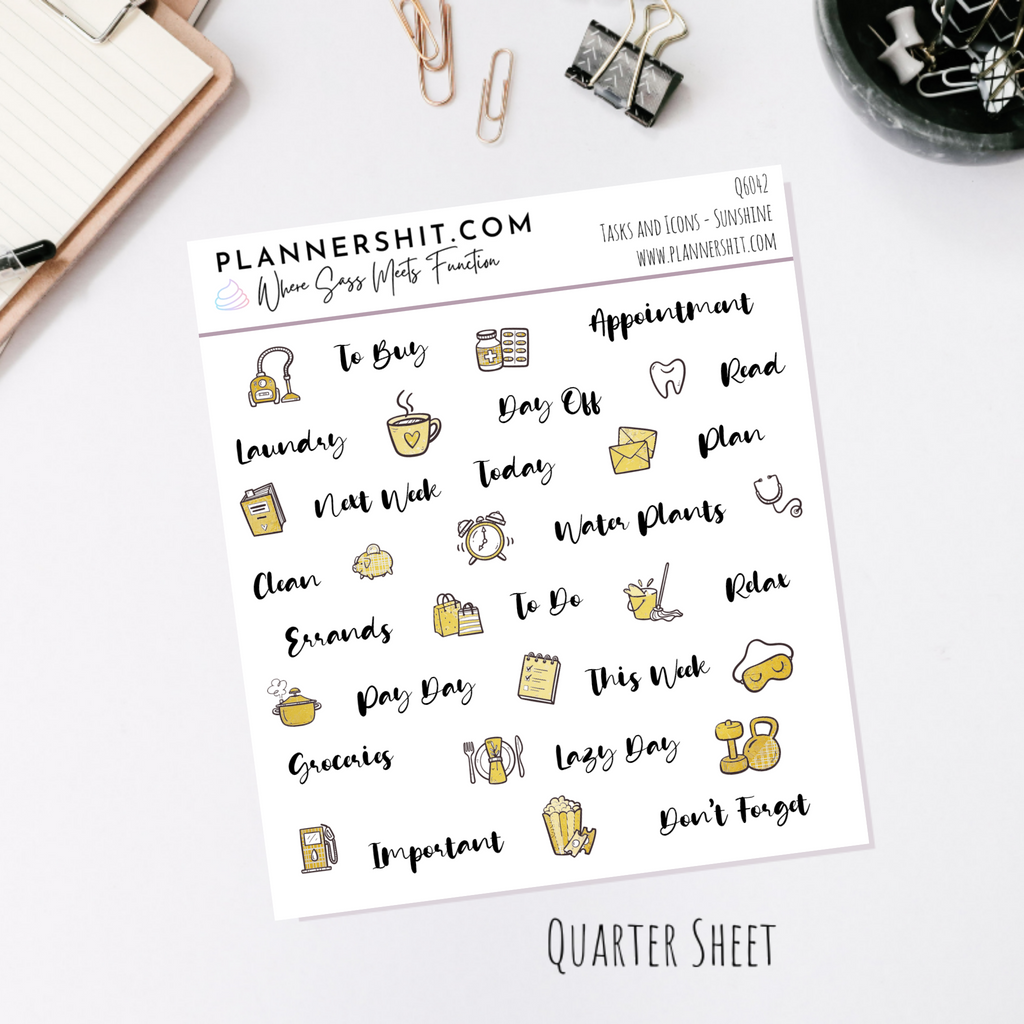 PLANNERSHIT.COM
Where Sass Meets Function
Q6042
Tasks and Icons - Sunshine
www.plannershit.com
To Buy
Appointment
Read
Laundry
Day Off
Plan
Next Week
Today
Water Plants
Clean
Relax
Errands
To Do
Pay Day
This Week
Groceries
Lazy Day
Important
Don't Forget
Quarter Sheet